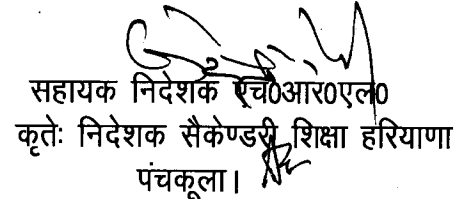 सहायक निदेशक एच0आर0एल0
कृतेः निदेशक सैकेण्डरी शिक्षा हरियाणा
पंचकूला।